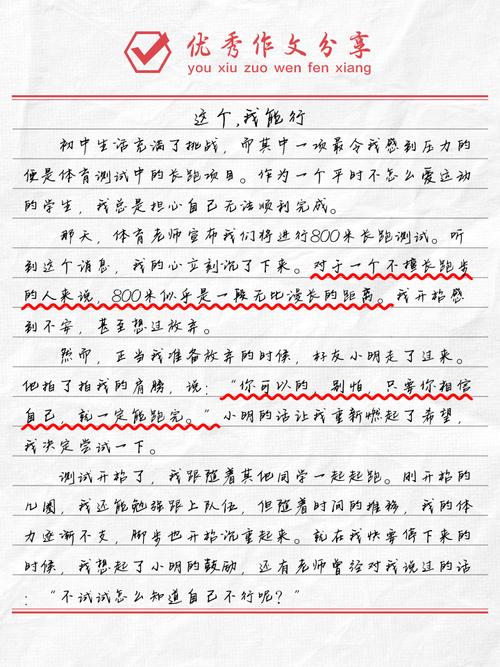 优秀作文分享
you xiu zuo wen fen xiang
这个,我能行
初中生活充满了挑战，而其中一项最令我感到压力的
便是体育测试中的长跑项目。作为一个平时不怎么爱运动
的学生，我总是担心自己无法顺利完成。
那天，体育老师宣布我们将进行800米长跑测试。听
到这个消息，我的心立刻沉了下来。对于一个不擅长跑步
的人来说，800米似乎是一段无比漫长的距离。我开始感
到不安，甚至想过放弃。
然而，正当我准备放弃的时候，好友小明走了过来。
他拍了拍我的肩膀，说：“你可以的，别怕，只要你相信
自己，就一定能跑完。”小明的话让我重新燃起了希望，
我决定尝试一下。
测试开始了，我跟随着其他同学一起起跑。刚开始的
几圈，我还能勉强跟上队伍，但随着时间的推移，我的体
力逐渐不支，脚步也开始沉重起来。就在我快要停下来的
时候，我想起了小明的鼓励，还有老师曾经对我说过的话
：“不试试怎么知道自己不行呢？”